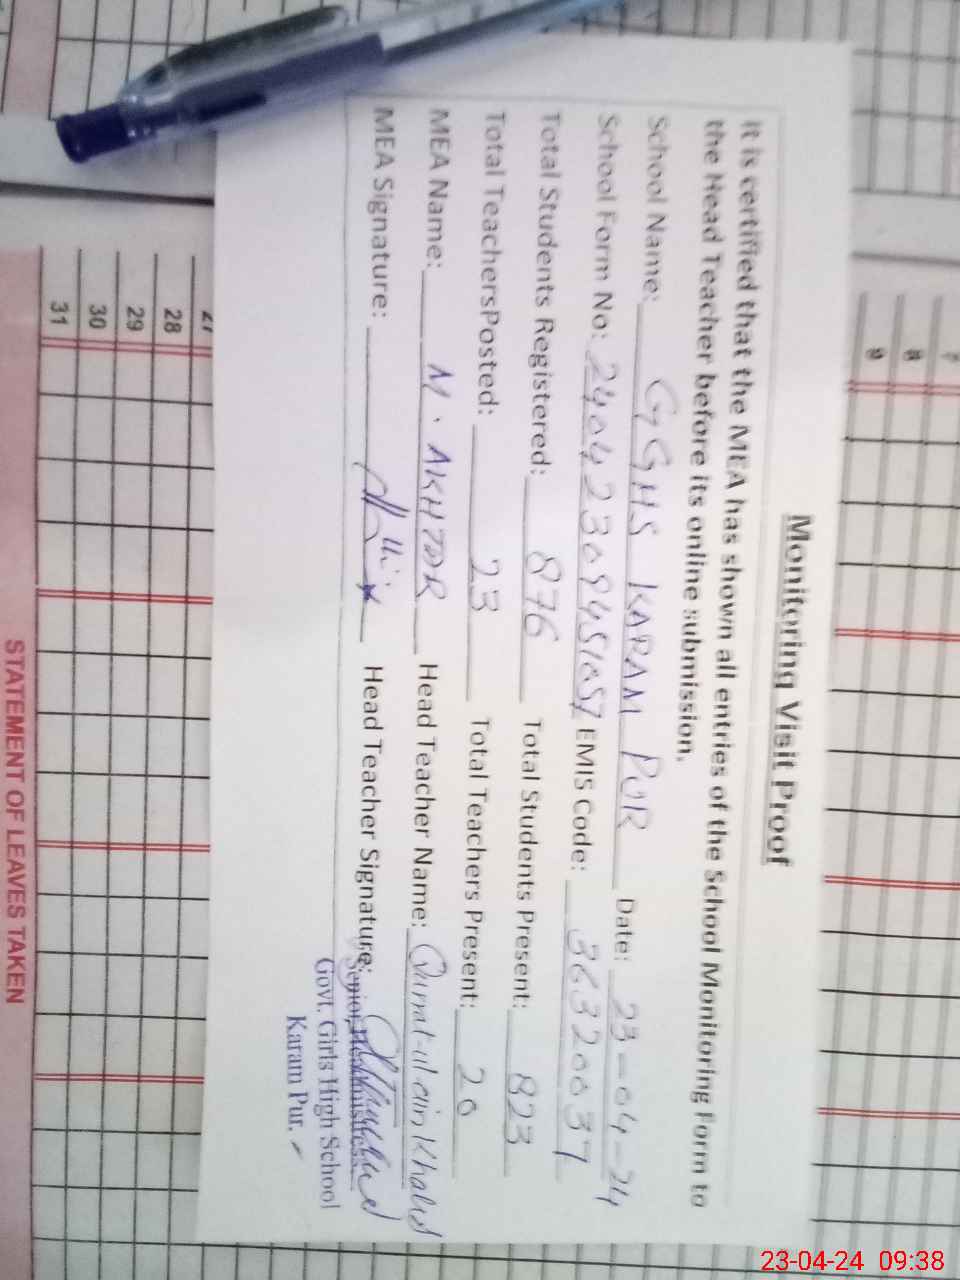 Monitoring Visit Proof
It is certified that the MEA has shown all entries of the School Monitoring Form to
the Head Teacher before its online submission.
School Name: GGHS KARAM PUR Date: 23-04-24
School Form No: EMIS Code: 36320037
Total Students Registered: 876 Total Students Present: 823
Total TeachersPosted: 23 Total Teachers Present: 20
MEA Name: M. AKHTAR Head Teacher Name: Qurat-ul-ain Khalid
MEA Signature: Head Teacher Signature:
Senior Headmistress
Govt. Girls High School
Karam Pur.
27
28
29
30
31
STATEMENT OF LEAVES TAKEN
8
9
23-04-24 09:38